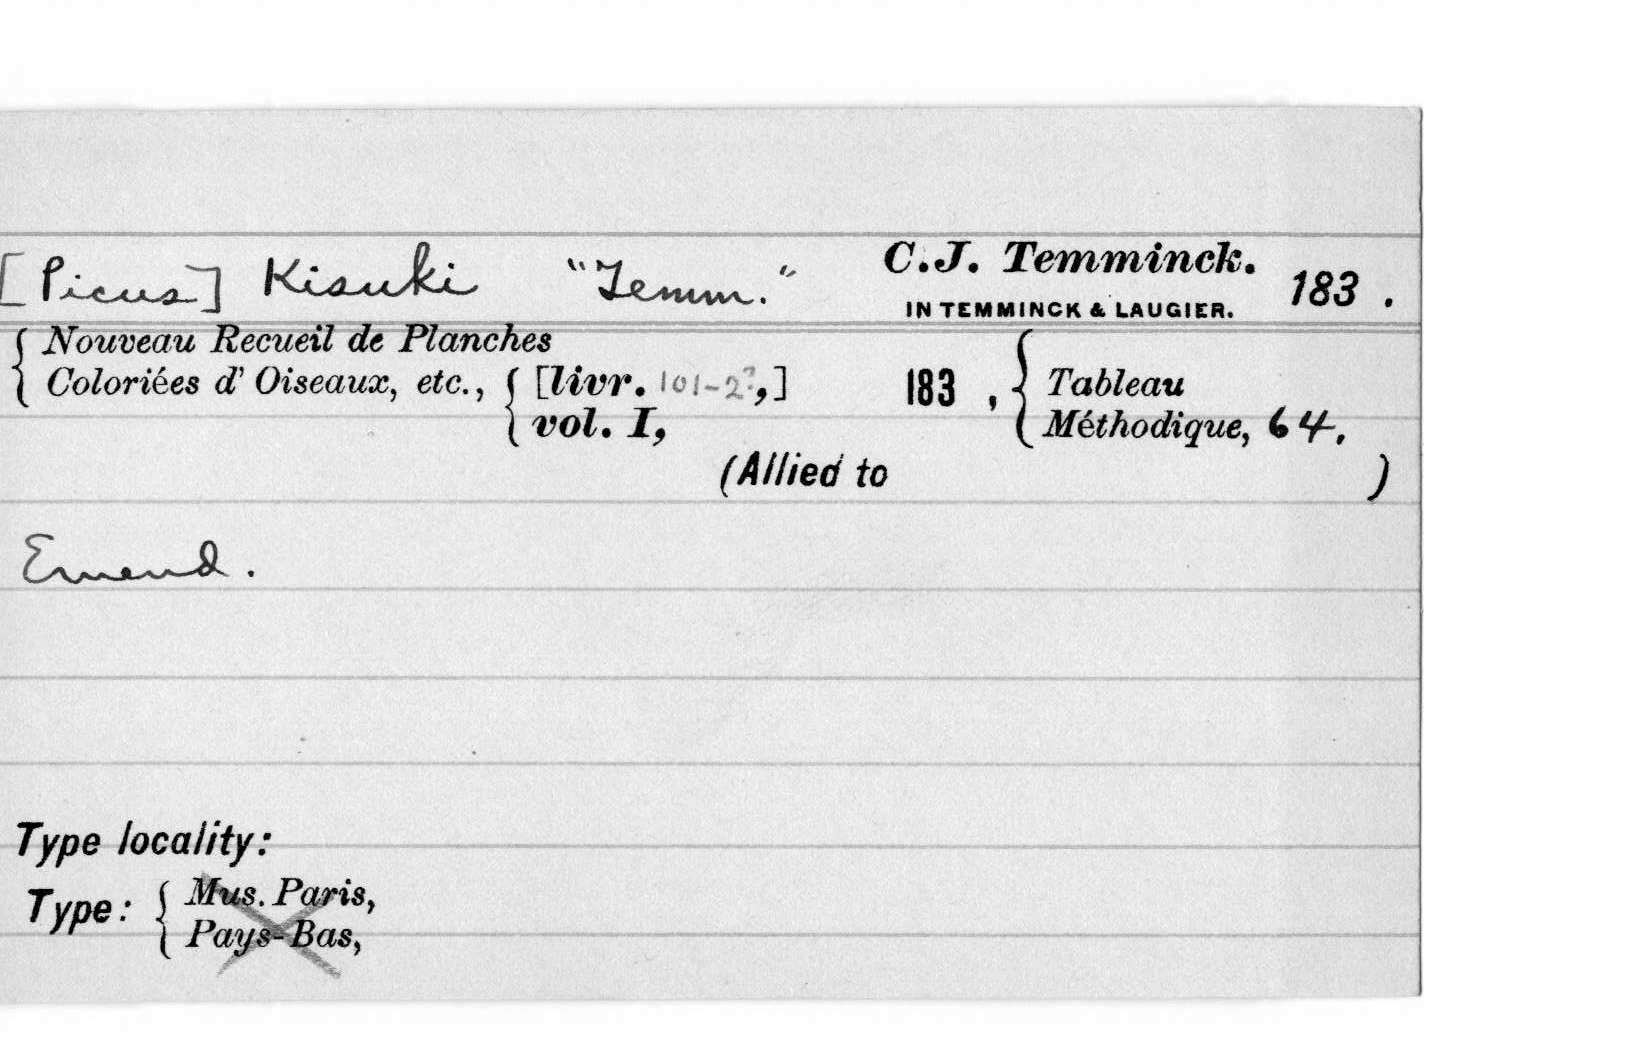 [Picus] Kisuki "Temm." C.J. Temminck. 183 .
IN TEMMINCK & LAUGIER.
Nouveau Recueil de Planches
Coloriées d' Oiseaux, etc., [livr. 101-2?,] 183 , Tableau
vol. I, Méthodique, 64.
(Allied to )
Emend.
Type locality:
Type: Mus. Paris,
Pays-Bas,